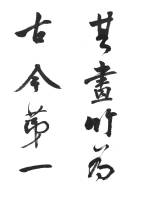 其畫竹為
古今第一